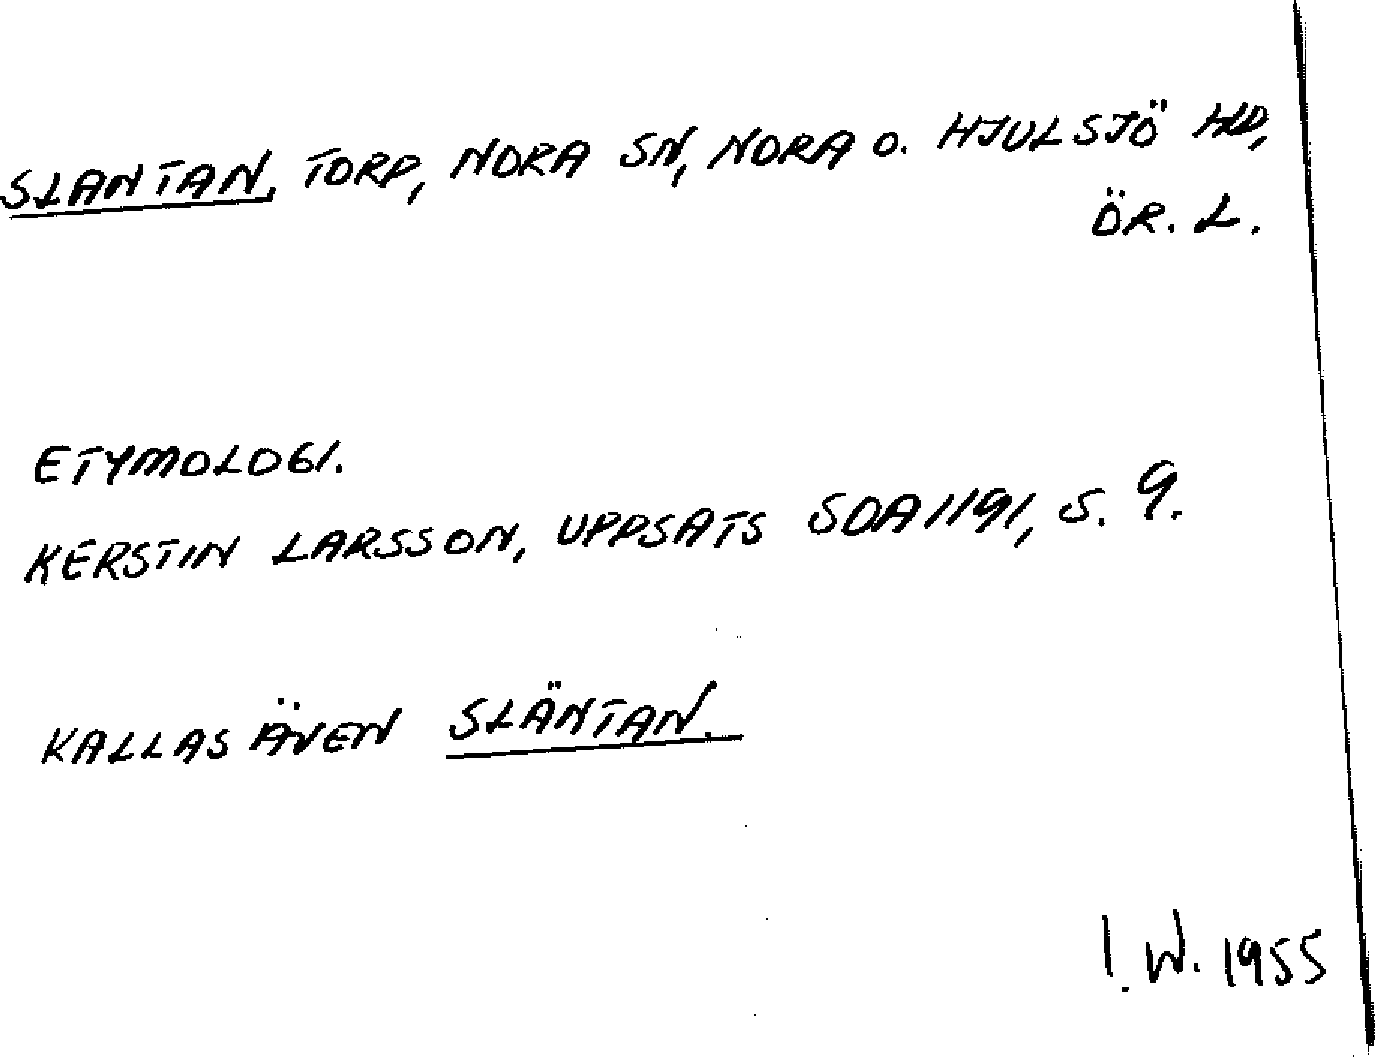 SLANTAN, TORP, NORA SN, NORA O. HJULSJÖ HD,
ÖR. L.
ETYMOLOGI.
KERSTIN LARSSON, UPPSATS SOA 1191, S. 9.
KALLAS ÄVEN SLÄNTAN.
I. W. 1955